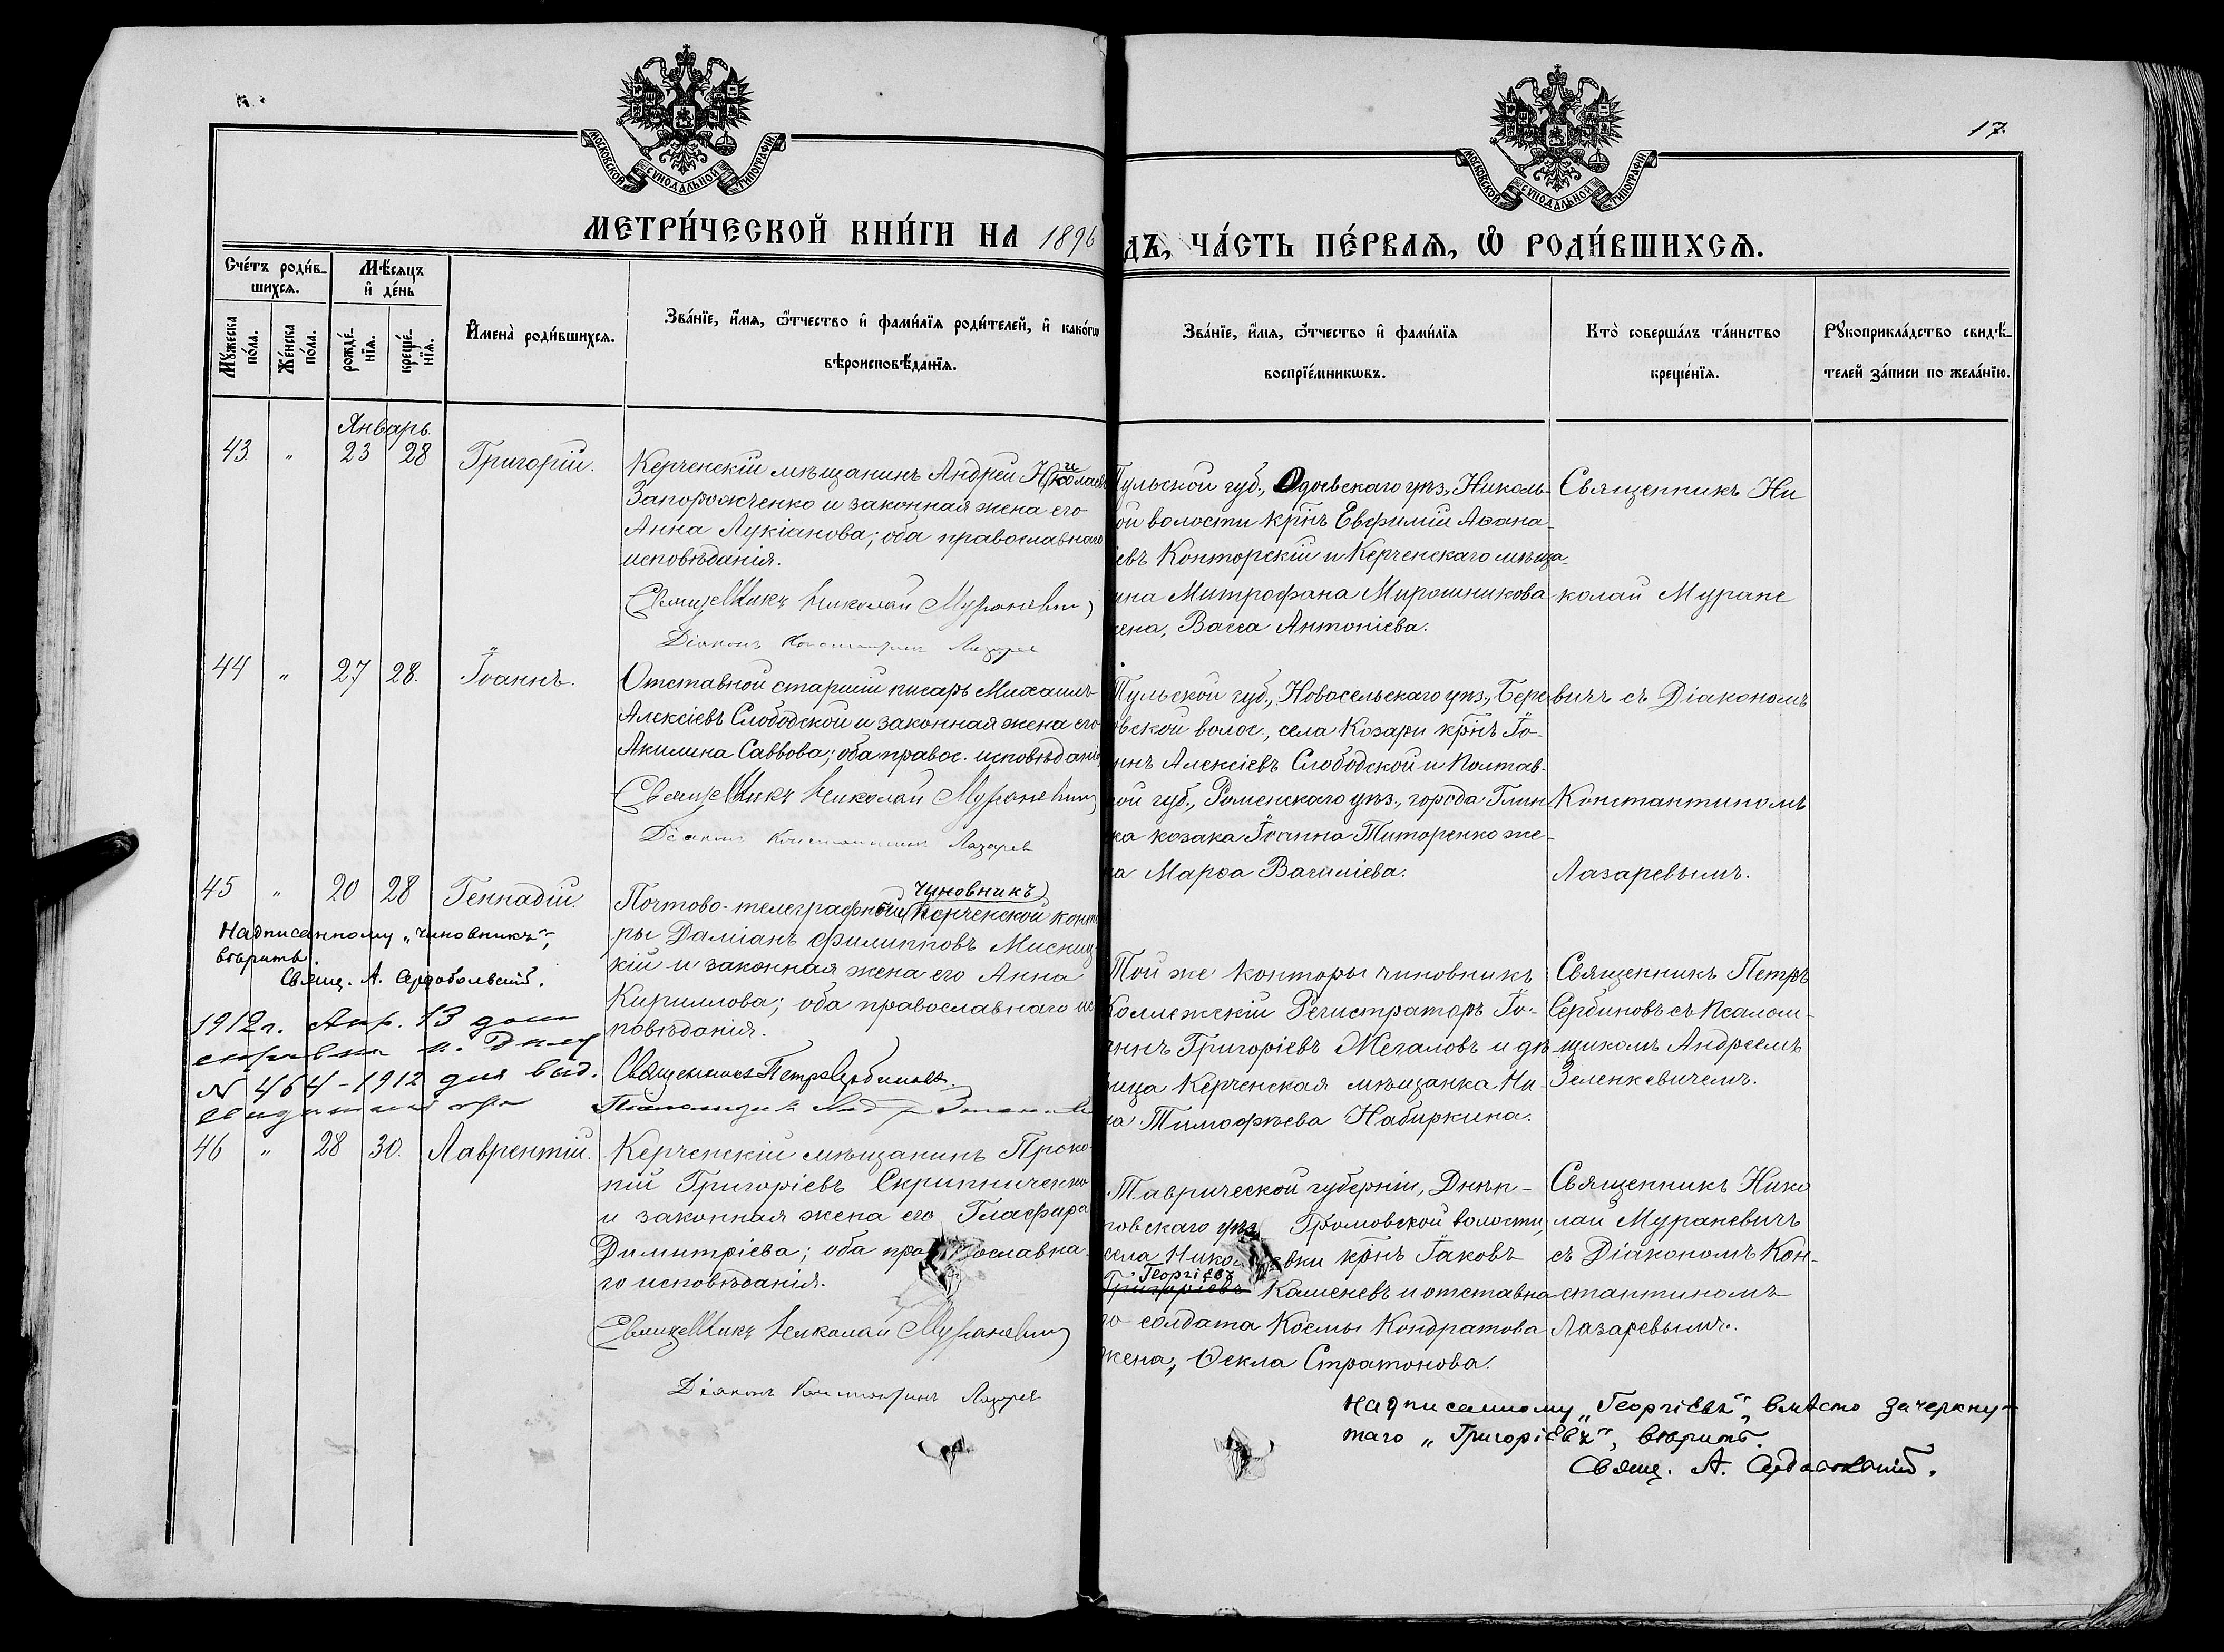 17
МОСКОВСКОЙ СУНОДАЛЬНОЙ ТИПОГРАФІИ
МОСКОВСКОЙ СУНОДАЛЬНОЙ ТИПОГРАФІИ
МЕТРИ́ЧЕСКОЙ КНИ́ГИ НА 1896
ДЪ, ЧА́СТЬ ПЕ́РВАѦ, Ѡ҆ РОДИ́ВШИХСѦ.
Сче́тъ роди́в-
шихсѧ.
Мѣ́сѧцъ
и҆ де́нь
Мꙋ́жеска
по́ла.
Же́нска
по́ла.
рожде́-
нїѧ.
креще́-
нїѧ.
И҆мена̀ роди́вшихсѧ.
Зва́нїе, и҆́мѧ, ѻ҆́тчество и҆ фами́лїѧ роди́телей, и҆ како́гѡ
вѣроисповѣ́данїѧ.
Зва́нїе, и҆́мѧ, ѻ҆́тчество и҆ фами́лїѧ
воспрїе́мникѡвъ.
Кто̀ соверша́лъ та́инство
креще́нїѧ.
Рꙋкоприкла́дство свидѣ́-
телей за́писи по жела́нїю.
Январь.
43 " 23 28 Григорій.
Керченскій мѣщанинъ Андрей Николаевъ
Запорожченко и законная жена его
Анна Лукіанова; оба православнаго
исповѣданія.
Священникъ Николай Мураневич
Діаконъ Константинъ Лазарев
Тульской губ., Одоевскаго уѣз., Николь-
ой волости крнъ Евфимій Аѳана-
іевъ Конторскій и Керченскаго мѣща-
ина Митрофана Мирошникова
жена, Васса Антоніева.
Священникъ Ни
колай Муране
44 " 27 28. Іоаннъ.
Отставной старшій писарь Михаилъ
Алексіевъ Слободской и законная жена его
Акилина Саввова; оба правос. исповѣданія
Священникъ Николай Мураневич
Діаконъ Константинъ Лазарев
Тульской губ., Новосельскаго уѣз., Бере
овской волос., села Козари крнъ Іо-
ннъ Алексіевъ Слободской и Полтав-
кой губ., Роменскаго уѣз., города Глин
ка козака Іоанна Титоренко же-
на Марѳа Василіева.
вичъ съ Діакономъ
Константиномъ
Лазаревымъ.
45 " 20 28 Геннадій.
чиновникъ
Почтово-телеграфной Керченской конто
ры Даміанъ Филипповъ Мисниц
кій и законная жена его Анна
Кириллова; оба православнаго ис
повѣданія.
Священникъ Петръ Сербиновъ.
Надписанному „чиновникъ",
вѣрить.
Свящ. А. Сердобольскій.
1912 г. Апр. 13 дана
справка
N 464-1912 для выд.
Той же конторы чиновникъ
Коллежскій Регистраторъ Іо-
ннъ Григоріевъ Мегаловъ и дѣ
вица Керченская мѣщанка Ни-
на Тимофѣева Набиркина.
Священникъ Петръ
Сербиновъ съ Псалом-
щикомъ Андреемъ
Зеленкевичемъ.
46 " 28 30. Лаврентій.
Керченскій мѣщанинъ Проко
пій Григоріевъ Скрипниченко
и законная жена его Гласфира
Димитріева; оба православна-
го исповѣданія.
Священникъ Николай Мураневич
Діаконъ Константинъ Лазарев
Таврической губерніи, Днѣп-
ровскаго уѣз. Громовской волости,
села Николаевки крнъ Іаковъ
Георгіевъ
Григоріевъ Каменевъ и отставна-
го солдата Космы Кондратова
жена, Ѳекла Стратонова.
Священникъ Нико
лай Мураневичъ
съ Діакономъ Кон-
стантиномъ
Лазаревымъ.
Надписанному „Георгіевъ", вмѣсто зачеркну-
таго „Григоріевъ", вѣрить.
Свящ. А. Сердобольскій.